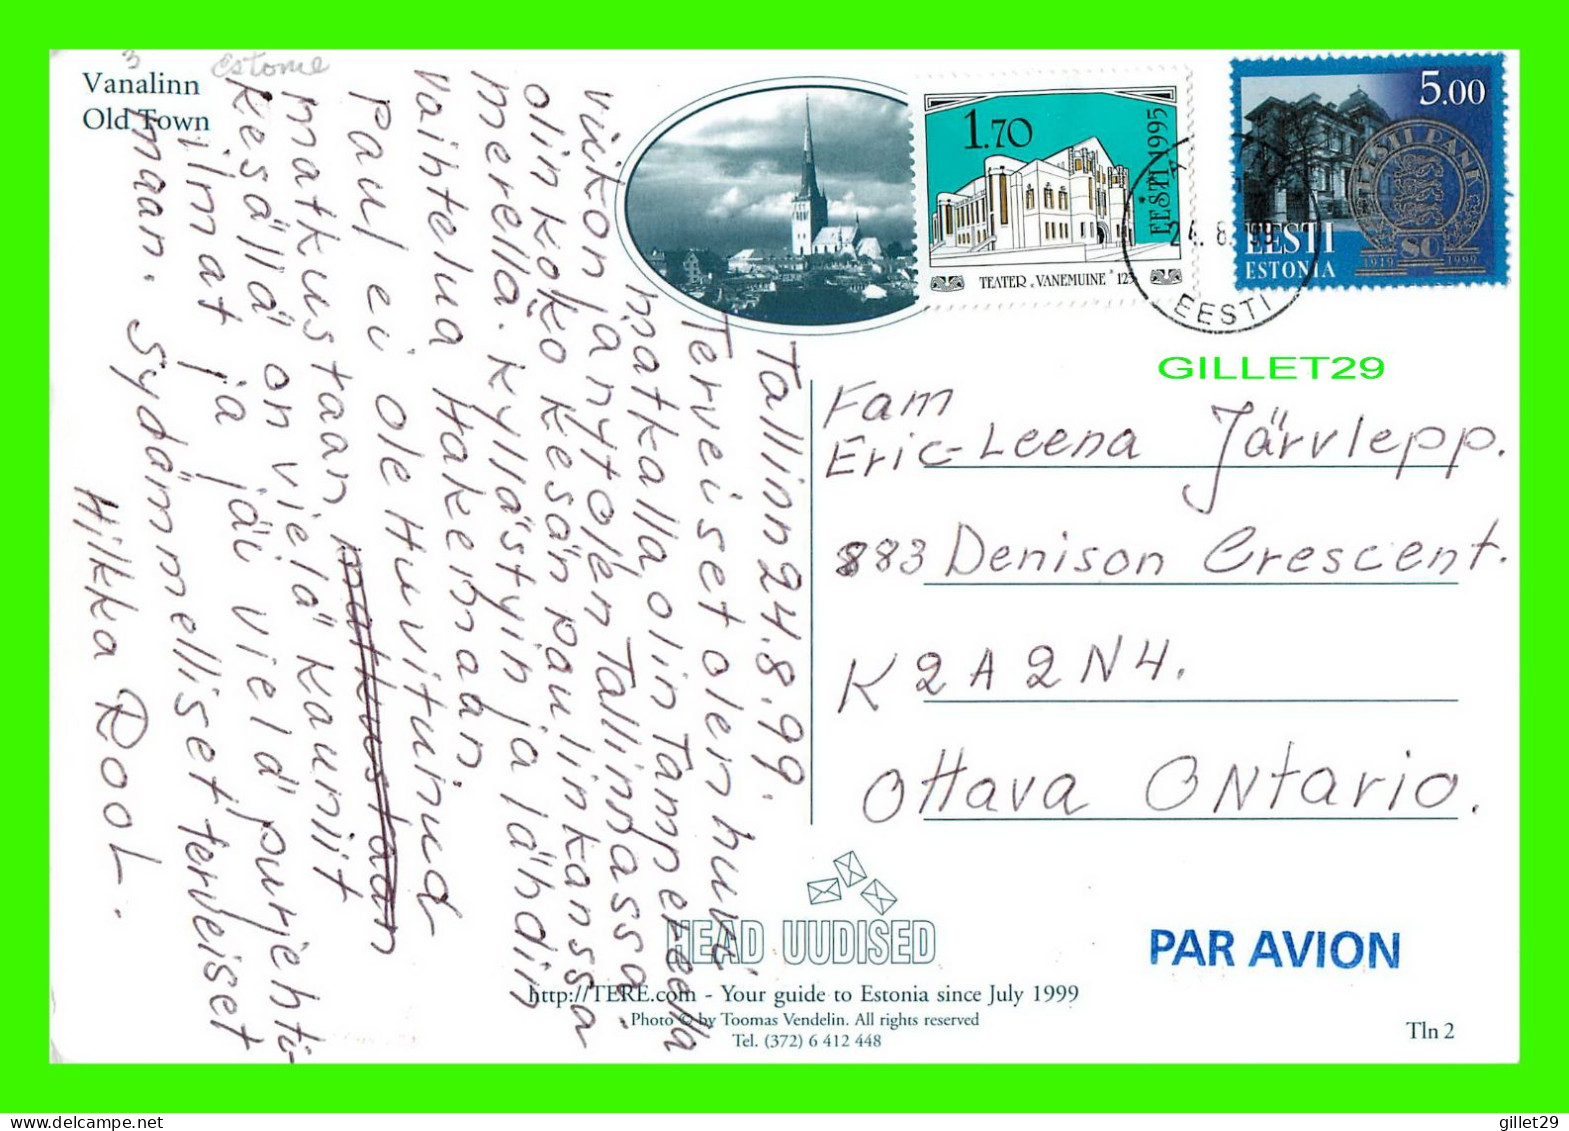 Vanalinn
Old Town
Estonie
1.70
EESTI 1995
TEATER „VANEMUINE" 125
5.00
EESTI PANK
EESTI
ESTONIA
1919 80 1999
8. 99
EESTI
GILLET29
Tallinn 24.8.99.
Terveiset olen huvi
matkalla olin Tampereella
viikon ja nyt olen Tallinnassa.
olin koko kesän paulin kanssa
merella. Kyllästyin ja lähdin
Vaihtelua Hakemaan.
Paul ei ole Huvitunud
matkustaan matkustaan
Kesällä on vielä kauniit
ilmat ja jäi vielä purjehti-
maan. Sydämmelliset terveiset
Hilkka Rool.
Fam
Eric-Leena Järvlepp.
883 Denison Crescent.
K2A2N4.
Ottava Ontario.
HEAD UUDISED
PAR AVION
http://TERE.com - Your guide to Estonia since July 1999
Photo © by Toomas Vendelin. All rights reserved
Tel. (372) 6 412 448
Tln 2
delcampe.net
gillet29